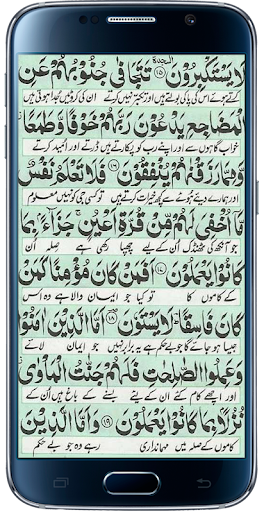 لَا يَسْتَكْبِرُوْنَ ۩ ۱۵ تَتَجَافٰى جُنُوْبُهُمْ عَنِ
السجدة
کرتے ہوئے اس کی پاکی بولتے ہیں اور تکبر نہیں کرتے ان کی کروٹیں جدا ہوتی ہیں
الْمَضَاجِعِ يَدْعُوْنَ رَبَّهُمْ خَوْفًا وَّطَمَعًا
خواب گاہوں سے اور اپنے رب کو پکارتے ہیں ڈرتے اور امید کرتے
وَّمِمَّا رَزَقْنٰهُمْ يُنْفِقُوْنَ ۱۶ فَلَا تَعْلَمُ نَفْسٌ
اور ہمارے دیئے ہوئے سے کچھ خیرات کرتے ہیں تو کسی جی کو نہیں معلوم
مَّاۤ اُخْفِيَ لَهُمْ مِّنْ قُرَّةِ اَعْيُنٍ ۚ جَزَآءًۢ بِمَا
جو آنکھ کی ٹھنڈک ان کے لیے چھپا رکھی ہے صلہ ان
كَانُوْا يَعْمَلُوْنَ ۱۷ اَفَمَنْ كَانَ مُؤْمِنًا كَمَنْ
کے کاموں کا تو کیا جو ایمان والا ہے وہ اس
كَانَ فَاسِقًا ؕ لَا يَسْتَوٗنَ ۱۸ اَمَّا الَّذِيْنَ اٰمَنُوْا
جیسا ہو جائے گا جو بے حکم ہے یہ برابر نہیں جو ایمان لائے
وَعَمِلُوا الصّٰلِحٰتِ فَلَهُمْ جَنّٰتُ الْمَاْوٰى ۫
اور اچھے کام کئے ان کے لیے بسنے کے باغ ہیں ان کے
نُزُلًۢا بِمَا كَانُوْا يَعْمَلُوْنَ ۱۹ وَاَمَّا الَّذِيْنَ
کاموں کے صلہ میں مہمانداری رہے وہ جو بے حکم